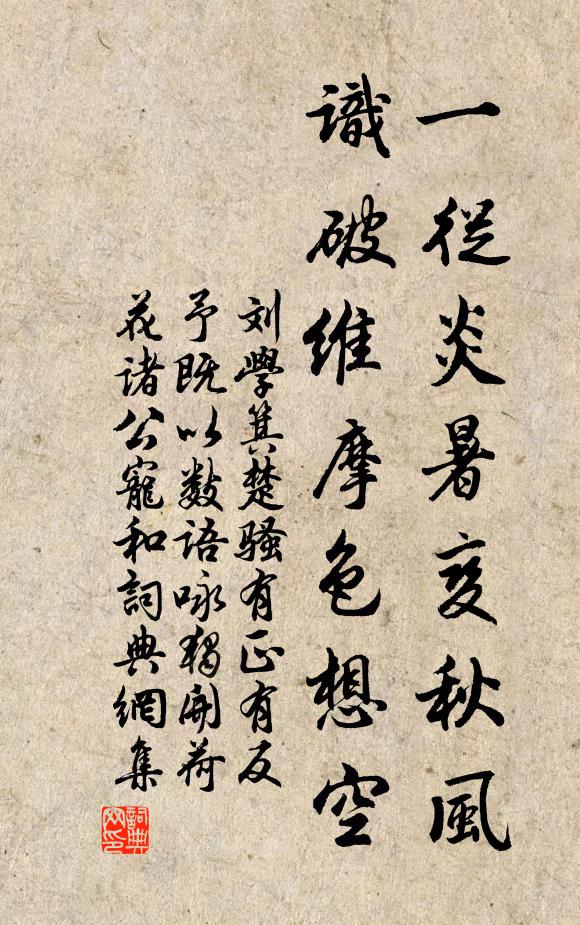 一從炎暑变秋風
識破維摩色想空
刘學箕楚骚有正有反
予既以数语咏独開荷
花诸公寵和詞典網集
詞典网印